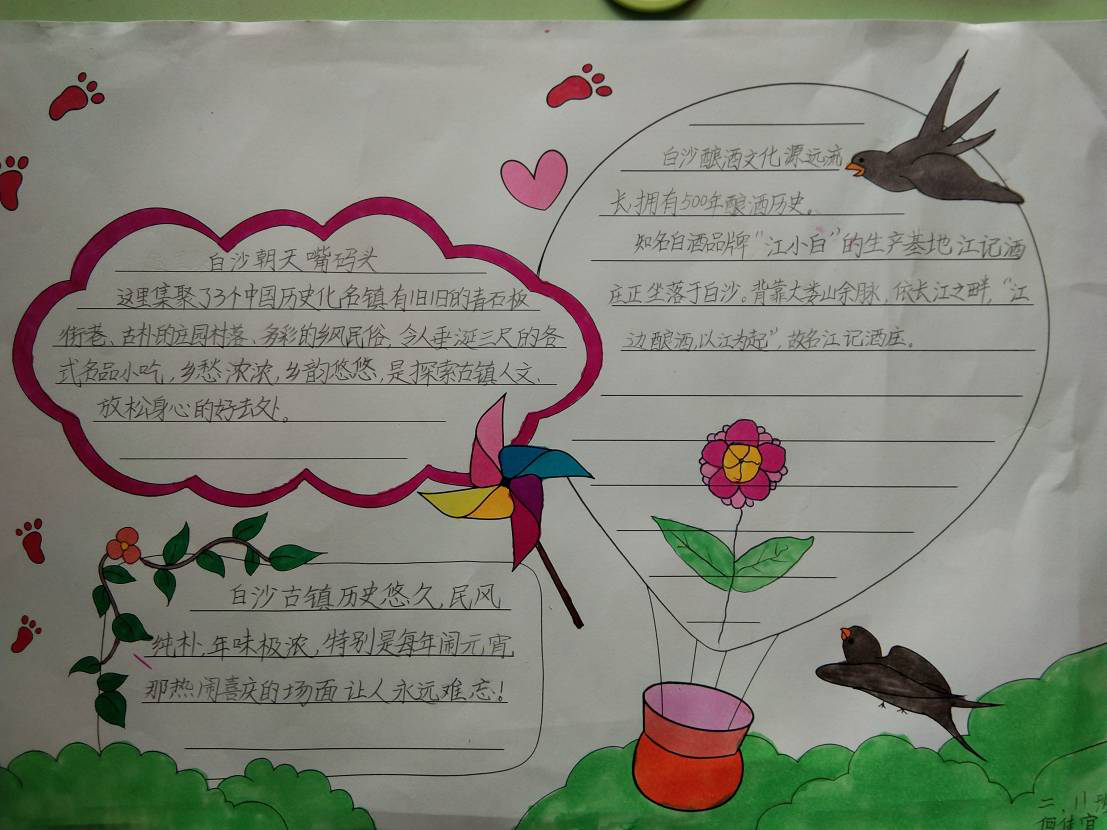 白沙朝天嘴码头
这里集聚了3个中国历史文化名镇,有旧旧的青石板
街巷、古朴的庄园村落、多彩的乡风民俗,令人垂涎三尺的各
式各品小吃,乡愁浓浓,乡韵悠悠,是探索古镇人文、
放松身心的好去处。
白沙古镇历史悠久,民风
纯朴,年味极浓,特别是每年闹元宵
那热闹喜庆的场面让人永远难忘!
白沙酿酒文化源远流
长,拥有500年酿酒历史。
知名白酒品牌“江小白”的生产基地江记酒
庄正坐落于白沙。背靠大娄山余脉,依长江之畔,“江
边酿酒,以江为起”,故名江记酒庄。
二.11班